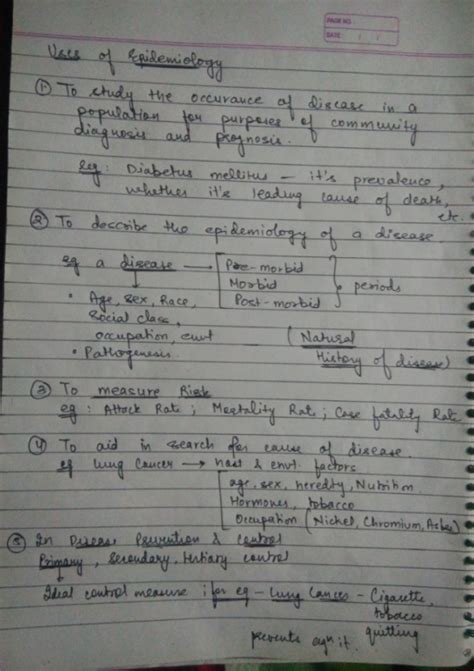 PAGE NO :
DATE / /
Uses of Epidemiology
① To study the occurance of disease in a
population for purposes of community
diagnosis and prognosis.
eg : Diabetus mellitus — it's prevalence,
whether it's leading cause of death,
etc.
② To describe the epidemiology of a disease
eg a disease → Pre-morbid
Morbid periods
• Age, sex, Race, Post-morbid
Social class,
occupation, envt (Natural
• Pathogenesis. History of disease)
③ To measure Risk
eg : Attack Rate ; Mortality Rate ; Case fatality Rate
④ To aid in search for cause of disease.
eg lung Cancer → host & envt. factors
age, sex, heredity, Nutrition
Hormones, tobacco
Occupation (Nickel, Chromium, Asbes)
⑤ In Disease Prevention & control
Primary, Secondary, tertiary control
Ideal control measure ; for eg - Lung Cancer - Cigarette,
tobacco
prevents agn it. quitting